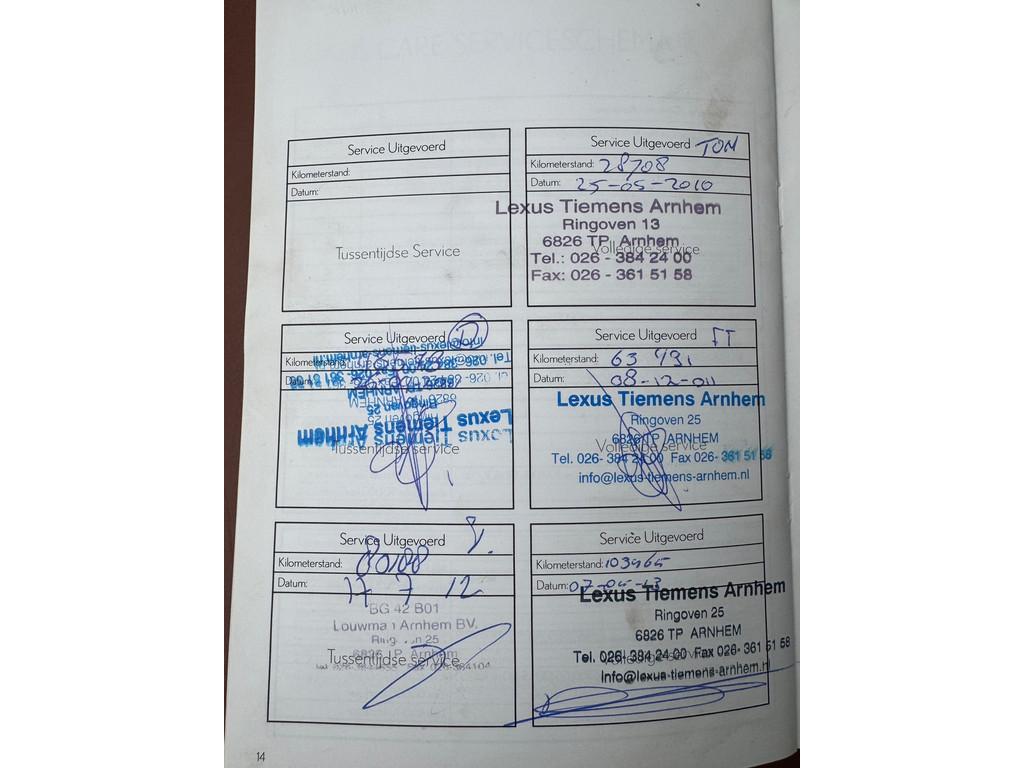 Service Uitgevoerd
Kilometerstand:
Datum:
Tussentijdse Service
Service Uitgevoerd TOM
Kilometerstand: 28708
Datum: 25-05-2010
Lexus Tiemens Arnhem
Ringoven 13
6826 TP Arnhem
Volledige service
Tel.: 026 - 384 24 00
Fax: 026 - 361 51 58
Service Uitgevoerd
Kilometerstand
Datum:
Ringoven 25
Lexus Tiemens Arnhem
Tussentijdse service
Service Uitgevoerd
Kilometerstand:
Datum: 08-12-011
Lexus Tiemens Arnhem
Ringoven 25
6826 TP ARNHEM
Volledige service
Tel. 026- 384 24 00 Fax 026- 361 51 58
info@lexus-tiemens-arnhem.nl
Service Uitgevoerd
Kilometerstand:
Datum: 17 7 12
BG 42 B01
Louwman Arnhem BV.
Ringoven 25
6826 TP Arnhem
Tussentijdse service
Service Uitgevoerd
Kilometerstand: 103965
Datum:
Lexus Tiemens Arnhem
Ringoven 25
6826 TP ARNHEM
Tel. 026- 384 24 00 Fax 026- 361 51 58
info@lexus-tiemens-arnhem.nl
14